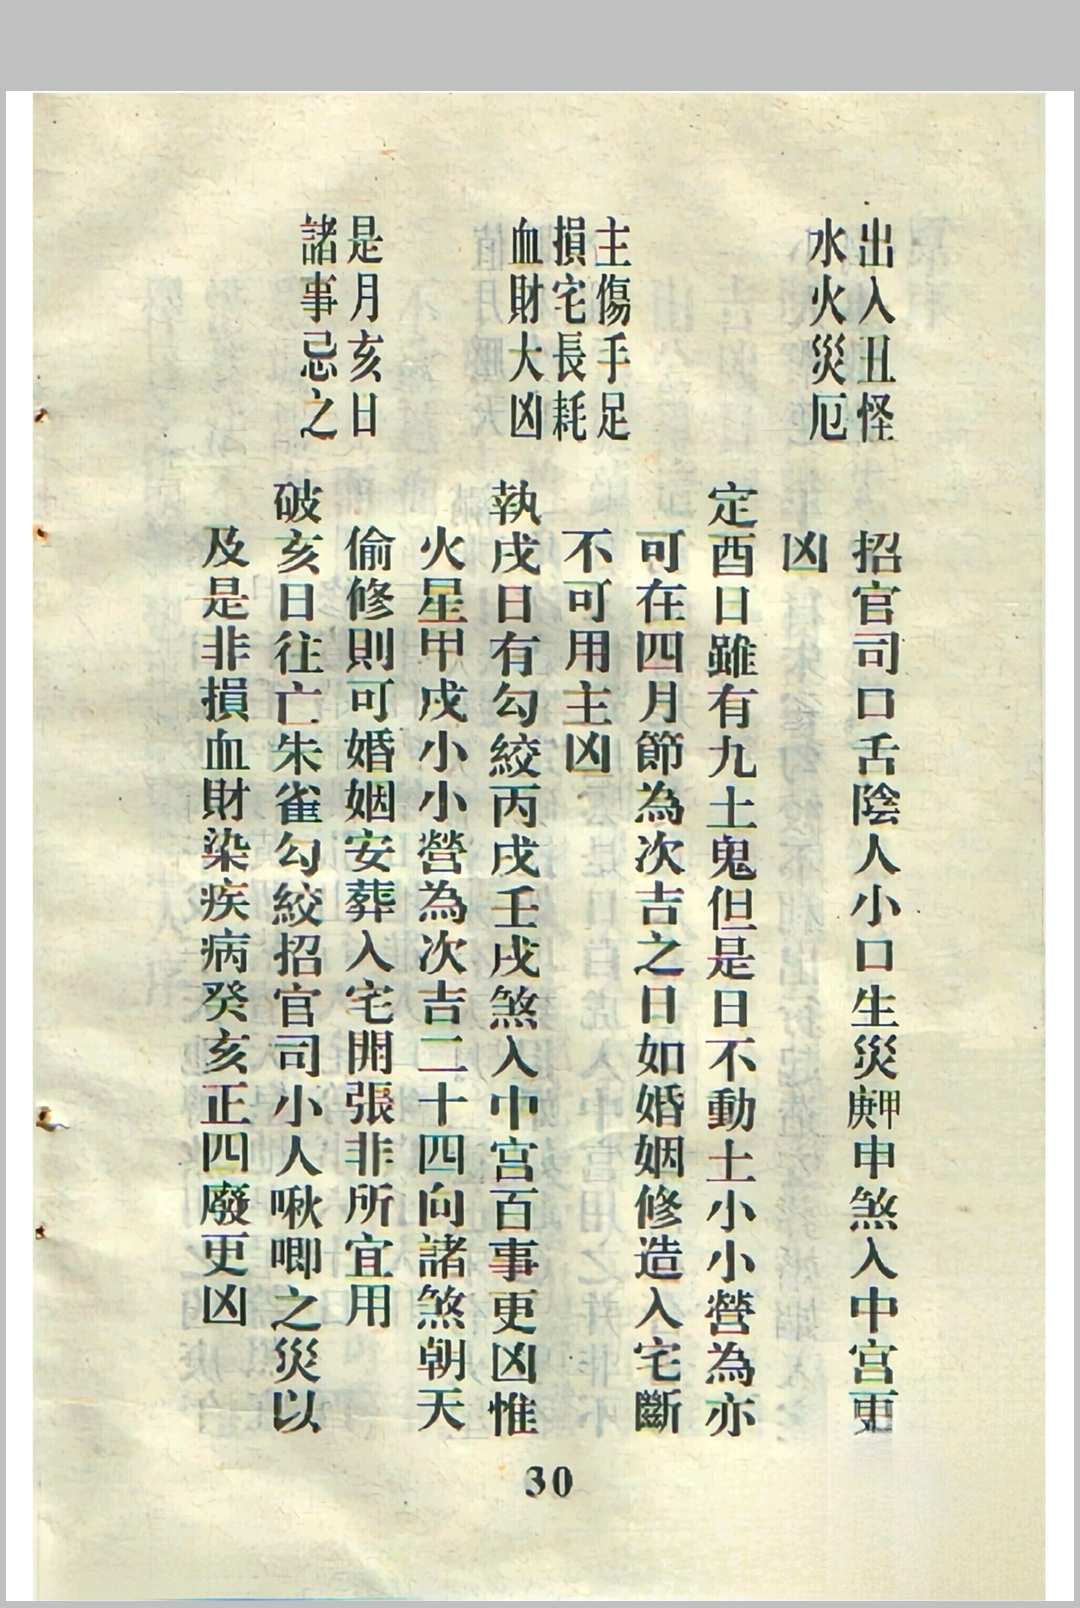 出入丑怪
水火災厄
主傷手足
損宅長耗
血財大凶
是月亥日
諸事忌之
招官司口舌陰人小口生災甲庚申煞入中宮更
凶
定酉日雖有九土鬼但是日不動土小小營為亦
可在四月節為次吉之日如婚姻修造入宅斷
不可用主凶
執戌日有勾絞丙戌壬戌煞入中宮百事更凶惟
火星甲戌小小營為次吉二十四向諸煞朝天
偷修則可婚姻安葬入宅開張非所宜用
破亥日往亡朱雀勾絞招官司小人啾唧之災以
及是非損血財染疾病癸亥正四廢更凶
30